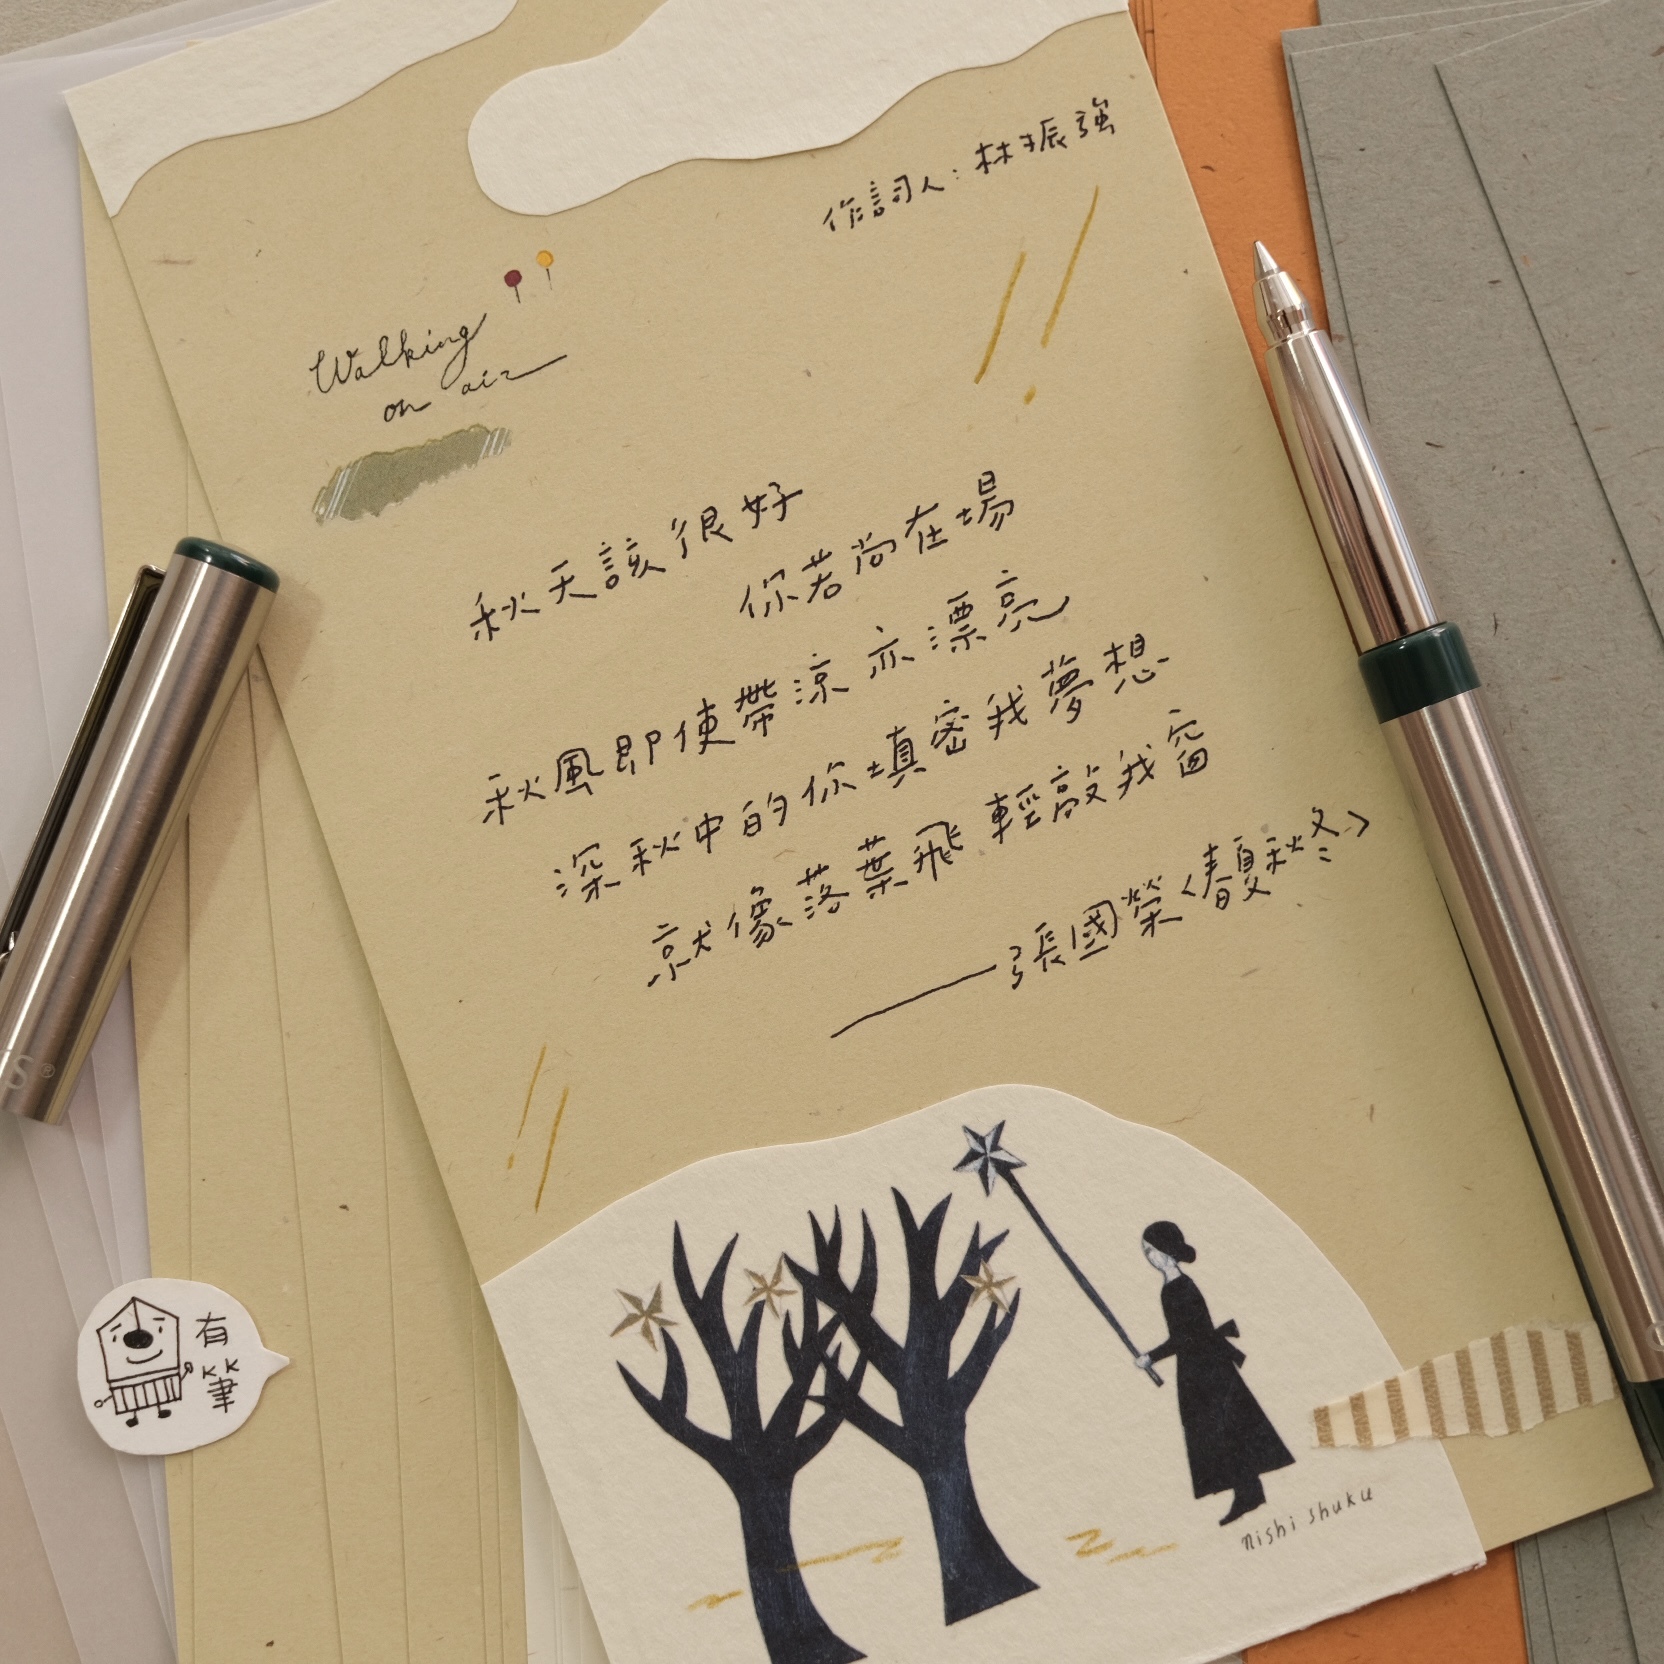 作詞人：林振強
Walking
on air
秋天該很好
你若尚在場
秋風即使帶涼 亦漂亮
深秋中的你填密我夢想
就像落葉飛 輕敲我窗
——張國榮〈春夏秋冬〉
有
筆
nishi shuku
S®